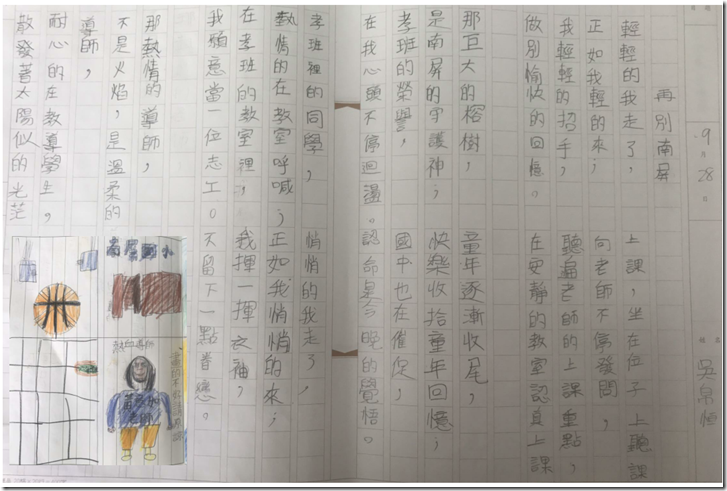 9月28日
吳帛恒
再別南屏
輕輕的我走了，
正如我輕的來；
我輕輕的招手，
做別愉快的回憶。
那巨大的榕樹，
是南屏的守護神；
孝班的榮譽，
在我心頭不停迴盪。
上課，坐在位子上聽課
向老師不停發問，
聽老師的上課重點，
在安靜的教室認真上課
童年逐漸收尾，
快樂收拾童年回憶；
國中也在催促，
認命是今晚的覺悟。
孝班裡的同學，
熱情的在教室呼喊；
在孝班的教室裡，
我願意當一位志工。
那熱情的導師，
不是火焰，是溫柔的
導師，
耐心的在教導學生，
散發著太陽似的光茫
悄悄的我走了，
正如我悄悄的來；
我揮一揮衣袖，
不留下一點眷戀。
南屏國小
熱血導師
老師